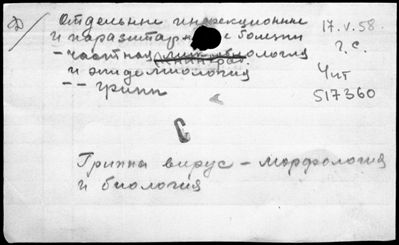 Д/
Отдельные инфекционные
и паразитарные болезни
- частная микробиология
и эпидемиология
-- грипп
17.V.58.
г.с.
Чит
517360
С
Гриппа вирус - морфология
и биология